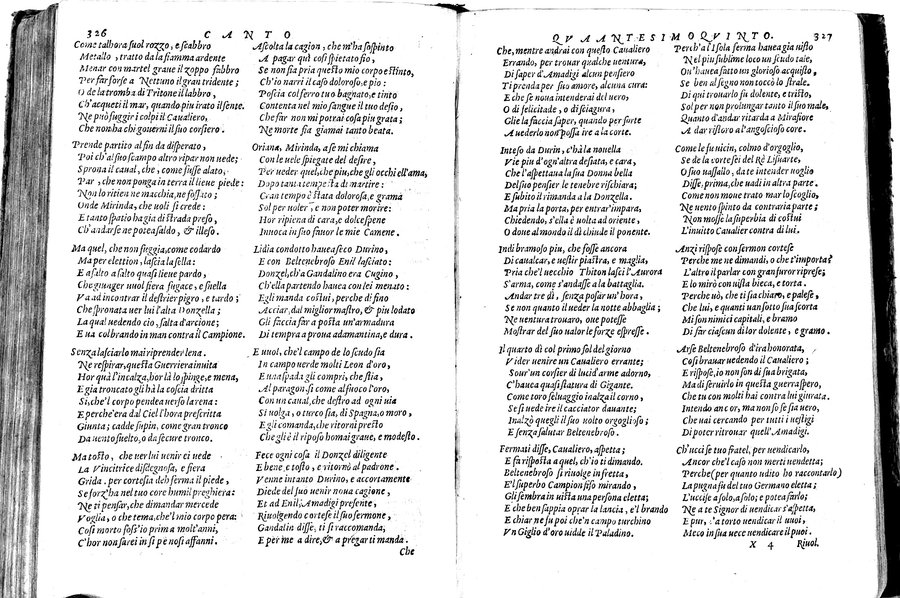 326 CANTO
Come talhora suol rozzo, e scabbro
Metallo, tratto da la fiamma ardente
Menar con martel graue il zoppo fabbro
Per far forse a Nettuno il gran tridente;
O de la tromba di Tritone il labbro,
Ch'acqueti il mar, quando piu irato il sente.
Ne può fuggir i colpi il Caualiero,
Che non ha chi gouerni il suo corsiero.
Prende partito al fin da disperato,
Poi ch'al suo scampo altro ripar non uede;
Sprona il caual, che, come fusse alato,
Par, che non ponga in terra il lieue piede:
Non lo ritien ne macchia, ne fossato;
Onde Mirinda, che uoli si crede:
E tanto spatio hagia di strada preso,
Ch'andarse ne potea saldo, & illeso.
Ma quel, che non fuggia, come codardo
Ma per elettion, lascia la sella:
E a salto a salto quasi lieue pardo,
Che giunger uuol fiera fugace, e snella
Va ad incontrar il destrier pigro, e tardo;
Che spronata uer lui l'alta Donzella;
La qual uedendo cio, salta d'arcione;
E ua colbrando in man contra il Campione.
Senza lasciarlo mai riprender lena.
Ne respirar, questa Guerriera inuitta
Hor quà l'incalza, hor là lo spinge, e mena,
E gia troncato gli hà la coscia dritta
Sì, che'l corpo pendea uerso la rena:
E perche'era dal Ciel l'hora prescritta
Giunta; cadde supin, come gran tronco
Da uento suelto, o da secure tronco.
Ma tosto, che uer lui uenir ei uede
La Vincitrice disdegnosa, e fiera
Grida. per cortesia deh ferma il piede,
Se forz'ha nel tuo core humil preghiera:
Ne ti pensar, che dimandar mercede
Voglia, o che tema, che'l mio corpo pera:
Cosi morto foss'io prima molt'anni,
C'hor non sarei in sì penosi affanni.
Ascolta la cagion, che m'ha sospinto
A pagar quì così spietato fio,
Se non sia pria questo mio corpo estinto,
Ch'io narri il caso doloroso, e pio:
Poscia col ferro tuo bagnato, e tinto
Contenta nel mio sangue il tuo desio,
Che far non mi potrai cosa piu grata;
Ne morte sia giamai tanto beata.
Oriana, Mirinda, a se mi chiama
Con le uele spiegate del desire,
Per ueder quel, che piu, che gli occhi ell'ama,
Dopo tanta tempesta di martire:
Gran tempo è stata dolorosa, e grama
Sol per uoler, e non poter morire:
Hor ripiena di cara, e dolce spene
Inuoca in suo fauor le mie Camene.
Lidia condotto hauea seco Durino,
E con Beltenebroso Enil lasciato:
Donzel, ch'a Gandalino era Cugino,
Ch'ella partendo hauea con lei menato:
Egli manda costui, perche di fino
Acciar, dal miglior mastro, & piu lodato
Gli faccia far a posta un'armadura
Di tempra a proua adamantina, e dura.
E uuol, che'l campo de lo scudo sia
In campo uerde molti Leon d'oro,
E una spada gli compri, che stia,
Al paragon, sì come al fuoco l'oro,
Con un caual, che destro ad ogni uia
Si uolga, o turco sia, di Spagna, o moro,
E gli comanda, che ritorni presto
Che gli è il riposo homai graue, e modesto.
Fece ogni cosa il Donzel diligente
E bene, e tosto, e ritornò al padrone.
Venne intanto Durino, e accortamente
Diede del suo uenir noua cagione,
Et ad Enil, Amadigi presente,
Riuolgendo cortese il suo sermone,
Gandalin disse, ti si raccomanda,
E per me a dire, & a pregar ti manda.
Che
QVARANTESIMOQVINTO. 327
Che, mentre andrai con questo Caualiero
Errando, per trouar qualche uentura,
Di saper d'Amadigi alcun pensiero
Ti prenda per suo amore, alcuna cura:
E che se noua intenderai del uero,
O di felicitade, o di sciagura,
Glie la faccia saper, quando per sorte
A uederlo non possa ire a la corte.
Inteso da Durin, c'hà la nouella
Vie piu d'ogn'altra desiata, e cara,
Che l'aspettaua la sua Donna bella
Del suo pensier le tenebre rischiara;
E subito il rimanda a la Donzella.
Ma pria la porta, per entrar, impara,
Chiedendo, s'ella è uolta ad oriente,
O doue al mondo il dì chiude il ponente.
Indi bramoso piu, che fosse ancora
Di caualcar, e uestir piastra, e maglia,
Pria che'l uecchio Thiton lasci l'Aurora
S'arma, come s'andasse a la battaglia.
Andar tre dì, senza posar un'hora,
Se non quanto il ueder la notte abbaglia;
Ne uentura trouaro, one potesse
Mostrar del suo ualor le forze espresse.
Il quarto dì col primo sol del giorno
Vider uenire un Caualiero errante;
Sour'un corsier di lucid'arme adorno,
C'hauea quasi statura di Gigante.
Come toro seluaggio inalza il corno,
Se si uede ire il cacciator dauante;
Inalzò quegli il suo uolto orgoglioso;
E senza salutar Beltenebroso.
Fermati disse, Caualiero, aspetta;
E fà risposta a quel, ch'io ti dimando.
Beltenebroso si riuolge in fretta,
E'l superbo Campion fiso mirando,
Gli sembra in uista una persona eletta;
E che ben sappia oprar la lancia, e'l brando
E chiar ne fu poi che'n campo turchino
Vn Giglio d'oro uidde il Paladino.
Perch'a l'Isola ferma hauea gia uisto
Nel piu sublime loco un scudo tale,
On'hauea fatto un glorioso acquisto,
Se ben al segno non toccò lo strale.
Di qui trouarlo fu dolente, e tristo,
Sol per non prolungar tanto il suo male,
Quanto d'andar ritarda a Mirafiore
A dar ristoro al'angoscioso core.
Come le fu uicin, colmo d'orgoglio,
Se de la corte sei del Rè Lisuarte,
O suo uassallo, da te intender uoglio
Disse, prima, che uadi in altra parte.
Come non moue trato mar lo scoglio,
Ne uento spinto da contraria parte;
Non mosse la superbia di costui
L'inuitto Caualier contra di lui.
Anzi rispose con sermon cortese
Perche me ne dimandi, o che t'importa?
L'altro il parlar con gran furor riprese;
E lo mirò con uista bieca, e torta.
Perche uò, che ti sia chiaro, e palese,
Che lui, e quanti uan sotto sua scorta
Mi son nimici capitali, e bramo
Di far ciascun di lor dolente, e gramo.
Arse Beltenebroso d'ira honorata,
Così brauar uedendo il Caualiero;
E rispose, io non son di sua brigata,
Ma di seruirlo in questa guerra spero,
Che tu con molti hai contra lui giurata.
Intendo ancor, ma non so se sia uero,
Che uai cercando per tutti i uestigi
Di poter ritrouar quell'Amadigi.
Ch'uccise tuo fratel, per uendicarlo,
Ancor che'l caso non merti uendetta;
Perche (per quanto udito ho raccontarlo)
La pugna fu del tuo Germano eletta;
L'uccise a solo, a solo; e potea farlo;
Ne a te Signor di uendicar s'aspetta,
E pur, s'a torto uendicar il uuoi,
Meco in sua uece uendicare il puoi.
X 4 Riuol.